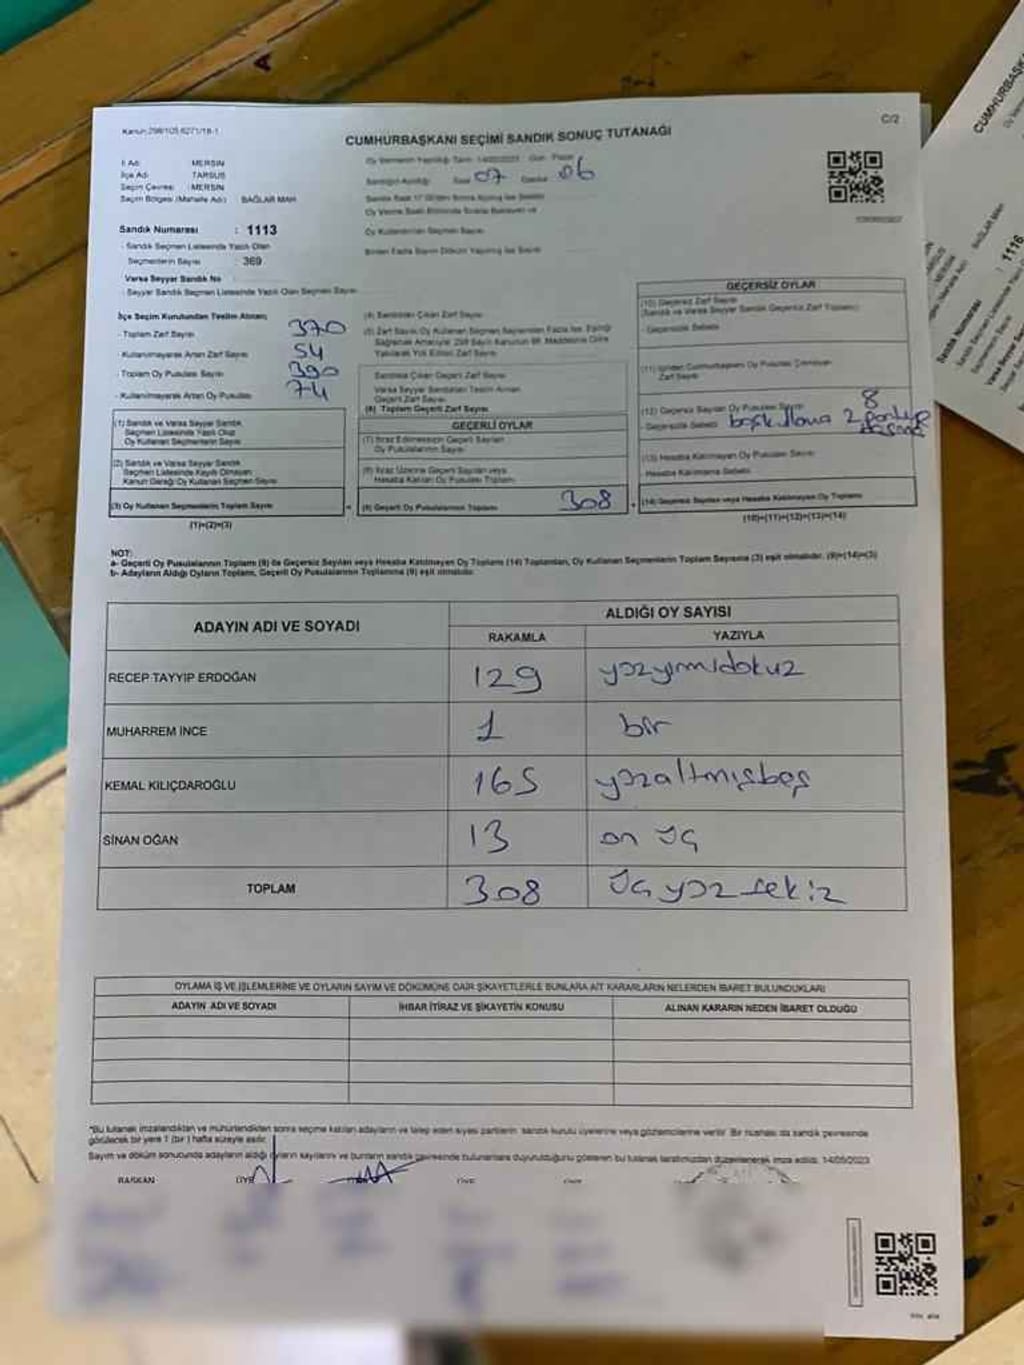 Kanun:298/105,6271/18-1
C/2
CUMHURBAŞKANI SEÇİMİ SANDIK SONUÇ TUTANAĞI
İl Adı: MERSİN
İlçe Adı: TARSUS
Seçim Çevresi: MERSİN
Seçim Bölgesi (Mahalle Adı) BAĞLAR MAH
Oy Vermenin Yapıldığı Tarih: 14/05/2023 Gün: Pazar
Sandığın Açıldığı Saat 07 Dakika 06
Oy Kullanılan Seçmen Sayısı
Sandık Numarası : 1113
- Sandık Seçmen Listesinde Yazılı Olan
Seçmenlerin Sayısı : 369
Varsa Seyyar Sandık No
- Seyyar Sandık Seçmen Listesinde Yazılı Olan Seçmen Sayısı
İlçe Seçim Kurulundan Teslim Alınan;
- Toplam Zarf Sayısı 370
- Kullanılmayarak Artan Zarf Sayısı 54
- Toplam Oy Pusulası Sayısı 390
- Kullanılmayarak Artan Oy Pusulası 74
(1) Sandık ve Varsa Seyyar Sandık
Seçmen Listesinde Yazılı Olup
Oy Kullanan Seçmenlerin Sayısı
(2) Sandık ve Varsa Seyyar Sandık
Seçmen Listesinde Kayıtlı Olmayan
Kanun Gereği Oy Kullanan Seçmen Sayısı
(3) Oy Kullanan Seçmenlerin Toplam Sayısı
(1)+(2)=(3)
(4) Sandıktan Çıkan Zarf Sayısı
(5) Zarf Sayısı Oy Kullanan Seçmen Sayısından Fazla İse, Eşitliği
Sağlamak Amacıyla; 298 Sayılı Kanunun 98. Maddesine Göre
Yakılarak Yok Edilen Zarf Sayısı
Sandıkta Çıkan Geçerli Zarf Sayısı
Varsa Seyyar Sandıktan Teslim Alınan
Geçerli Zarf Sayısı
(6) Toplam Geçerli Zarf Sayısı
GEÇERLİ OYLAR
(7) İtiraz Edilmeksizin Geçerli Sayılan
Oy Pusulalarının Sayısı
(8) İtiraz Üzerine Geçerli Sayılan veya
Hesaba Katılan Oy Pusulası Toplamı
(9) Geçerli Oy Pusulalarının Toplamı 308
GEÇERSİZ OYLAR
(10) Geçersiz Zarf Sayısı
(Sandık ve Varsa Seyyar Sandık Geçersiz Zarf Toplamı)
- Geçersizlik Sebebi
(11) İçinden Cumhurbaşkanı Oy Pusulası Çıkmayan
Zarf Sayısı
(12) Geçersiz Sayılan Oy Pusulası Sayısı 8
- Geçersizlik Sebebi
(13) Hesaba Katılmayan Oy Pusulası Sayısı
- Hesaba Katılmama Sebebi
(14) Geçersiz Sayılan veya Hesaba Katılmayan Oy Toplamı
(10)+(11)+(12)+(13)=(14)
NOT:
a- Geçerli Oy Pusulalarının Toplamı (9) ile Geçersiz Sayılan veya Hesaba Katılmayan Oy Toplamı (14) Toplamları, Oy Kullanan Seçmenlerin Toplam Sayısına (3) eşit olmalıdır. (9)+(14)=(3)
b- Adayların Aldığı Oyların Toplamı, Geçerli Oy Pusulalarının Toplamına (9) eşit olmalıdır.
ADAYIN ADI VE SOYADI
ALDIĞI OY SAYISI
RAKAMLA YAZIYLA
RECEP TAYYİP ERDOĞAN 129 yüzyirmidokuz
MUHARREM İNCE 1 bir
KEMAL KILIÇDAROĞLU 165 yüzaltmışbeş
SİNAN OĞAN 13 on üç
TOPLAM 308 üç yüz sekiz
OYLAMA İŞ VE İŞLEMLERİNE VE OYLARIN SAYIM VE DÖKÜMÜNE DAİR ŞİKAYETLERLE BUNLARA AİT KARARLARIN NELERDEN İBARET BULUNDUKLARI
ADAYIN ADI VE SOYADI İHBAR İTİRAZ VE ŞİKAYETİN KONUSU ALINAN KARARIN NEDEN İBARET OLDUĞU
*Bu tutanak imzalandıktan ve mühürlendikten sonra seçime katılan adayların ve talep eden siyasi partilerin sandık kurulu üyelerine veya gözlemcilerine verilir. Bir nüshası da sandık çevresinde
görülecek bir yere 1 (bir) hafta süreyle asılır.
Sayım ve döküm sonucunda adayların aldığı oyların sayılarını ve bunların sandık çevresinde bulunanlara duyurulduğunu gösteren bu tutanak tarafımızdan düzenlenerek imza edildi. 14/05/2023
BAŞKAN ÜYE ÜYE ÜYE
CUMHURBAŞK
BAĞLAR MAH
: 1116
Sandık Numarası